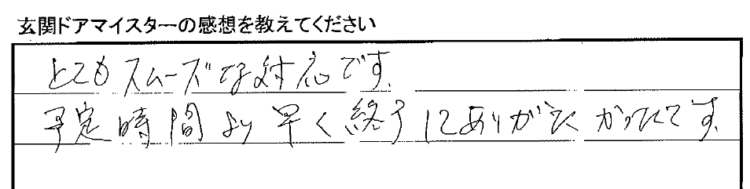 玄関ドアマイスターの感想を教えてください
とてもスムーズな対応です.
予定時間より早く終了しありがたかったです.